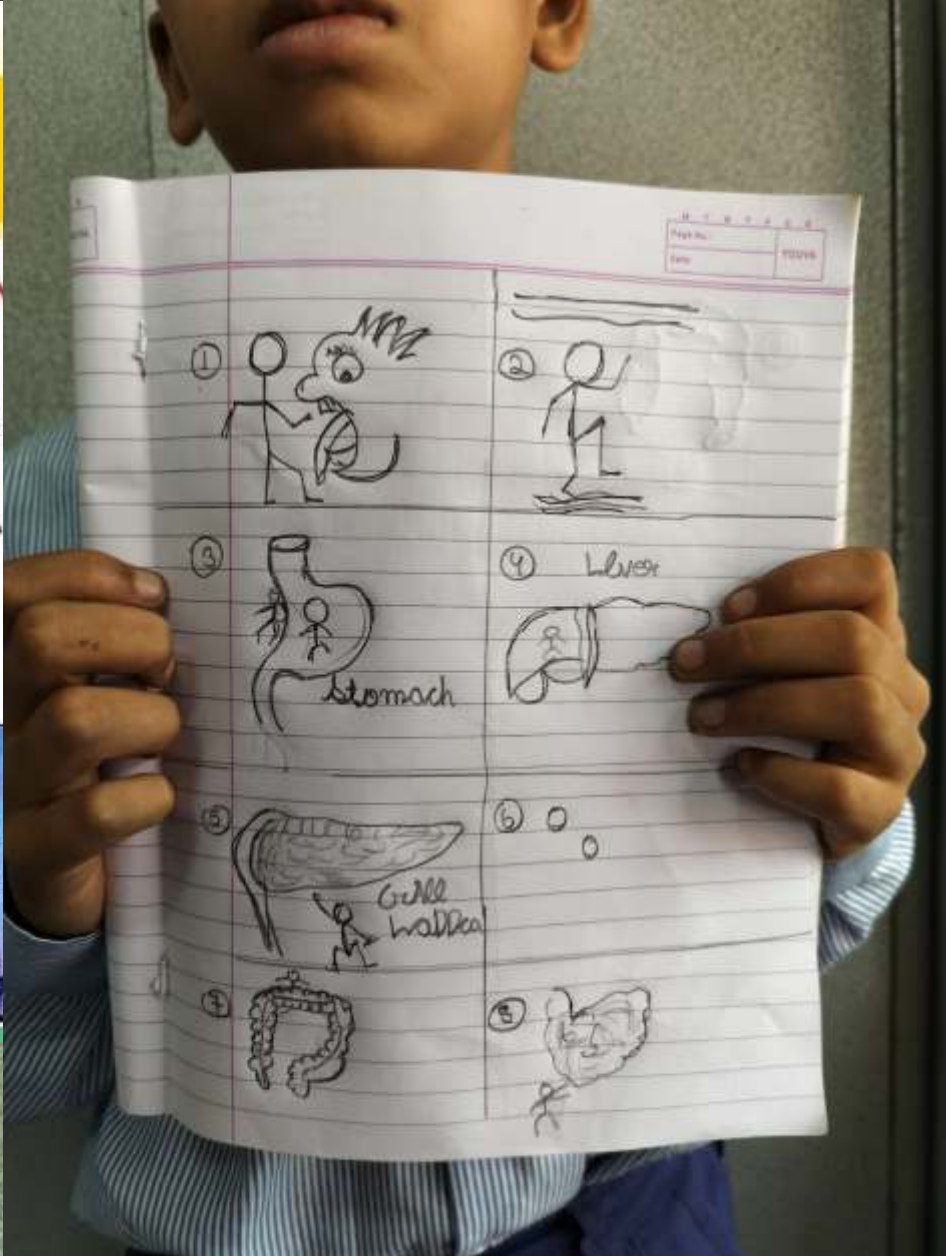 Page No.
Date
YOUVA
1
2
3
Stomach
4
Liver
5
Gall
bladder
6
7
8